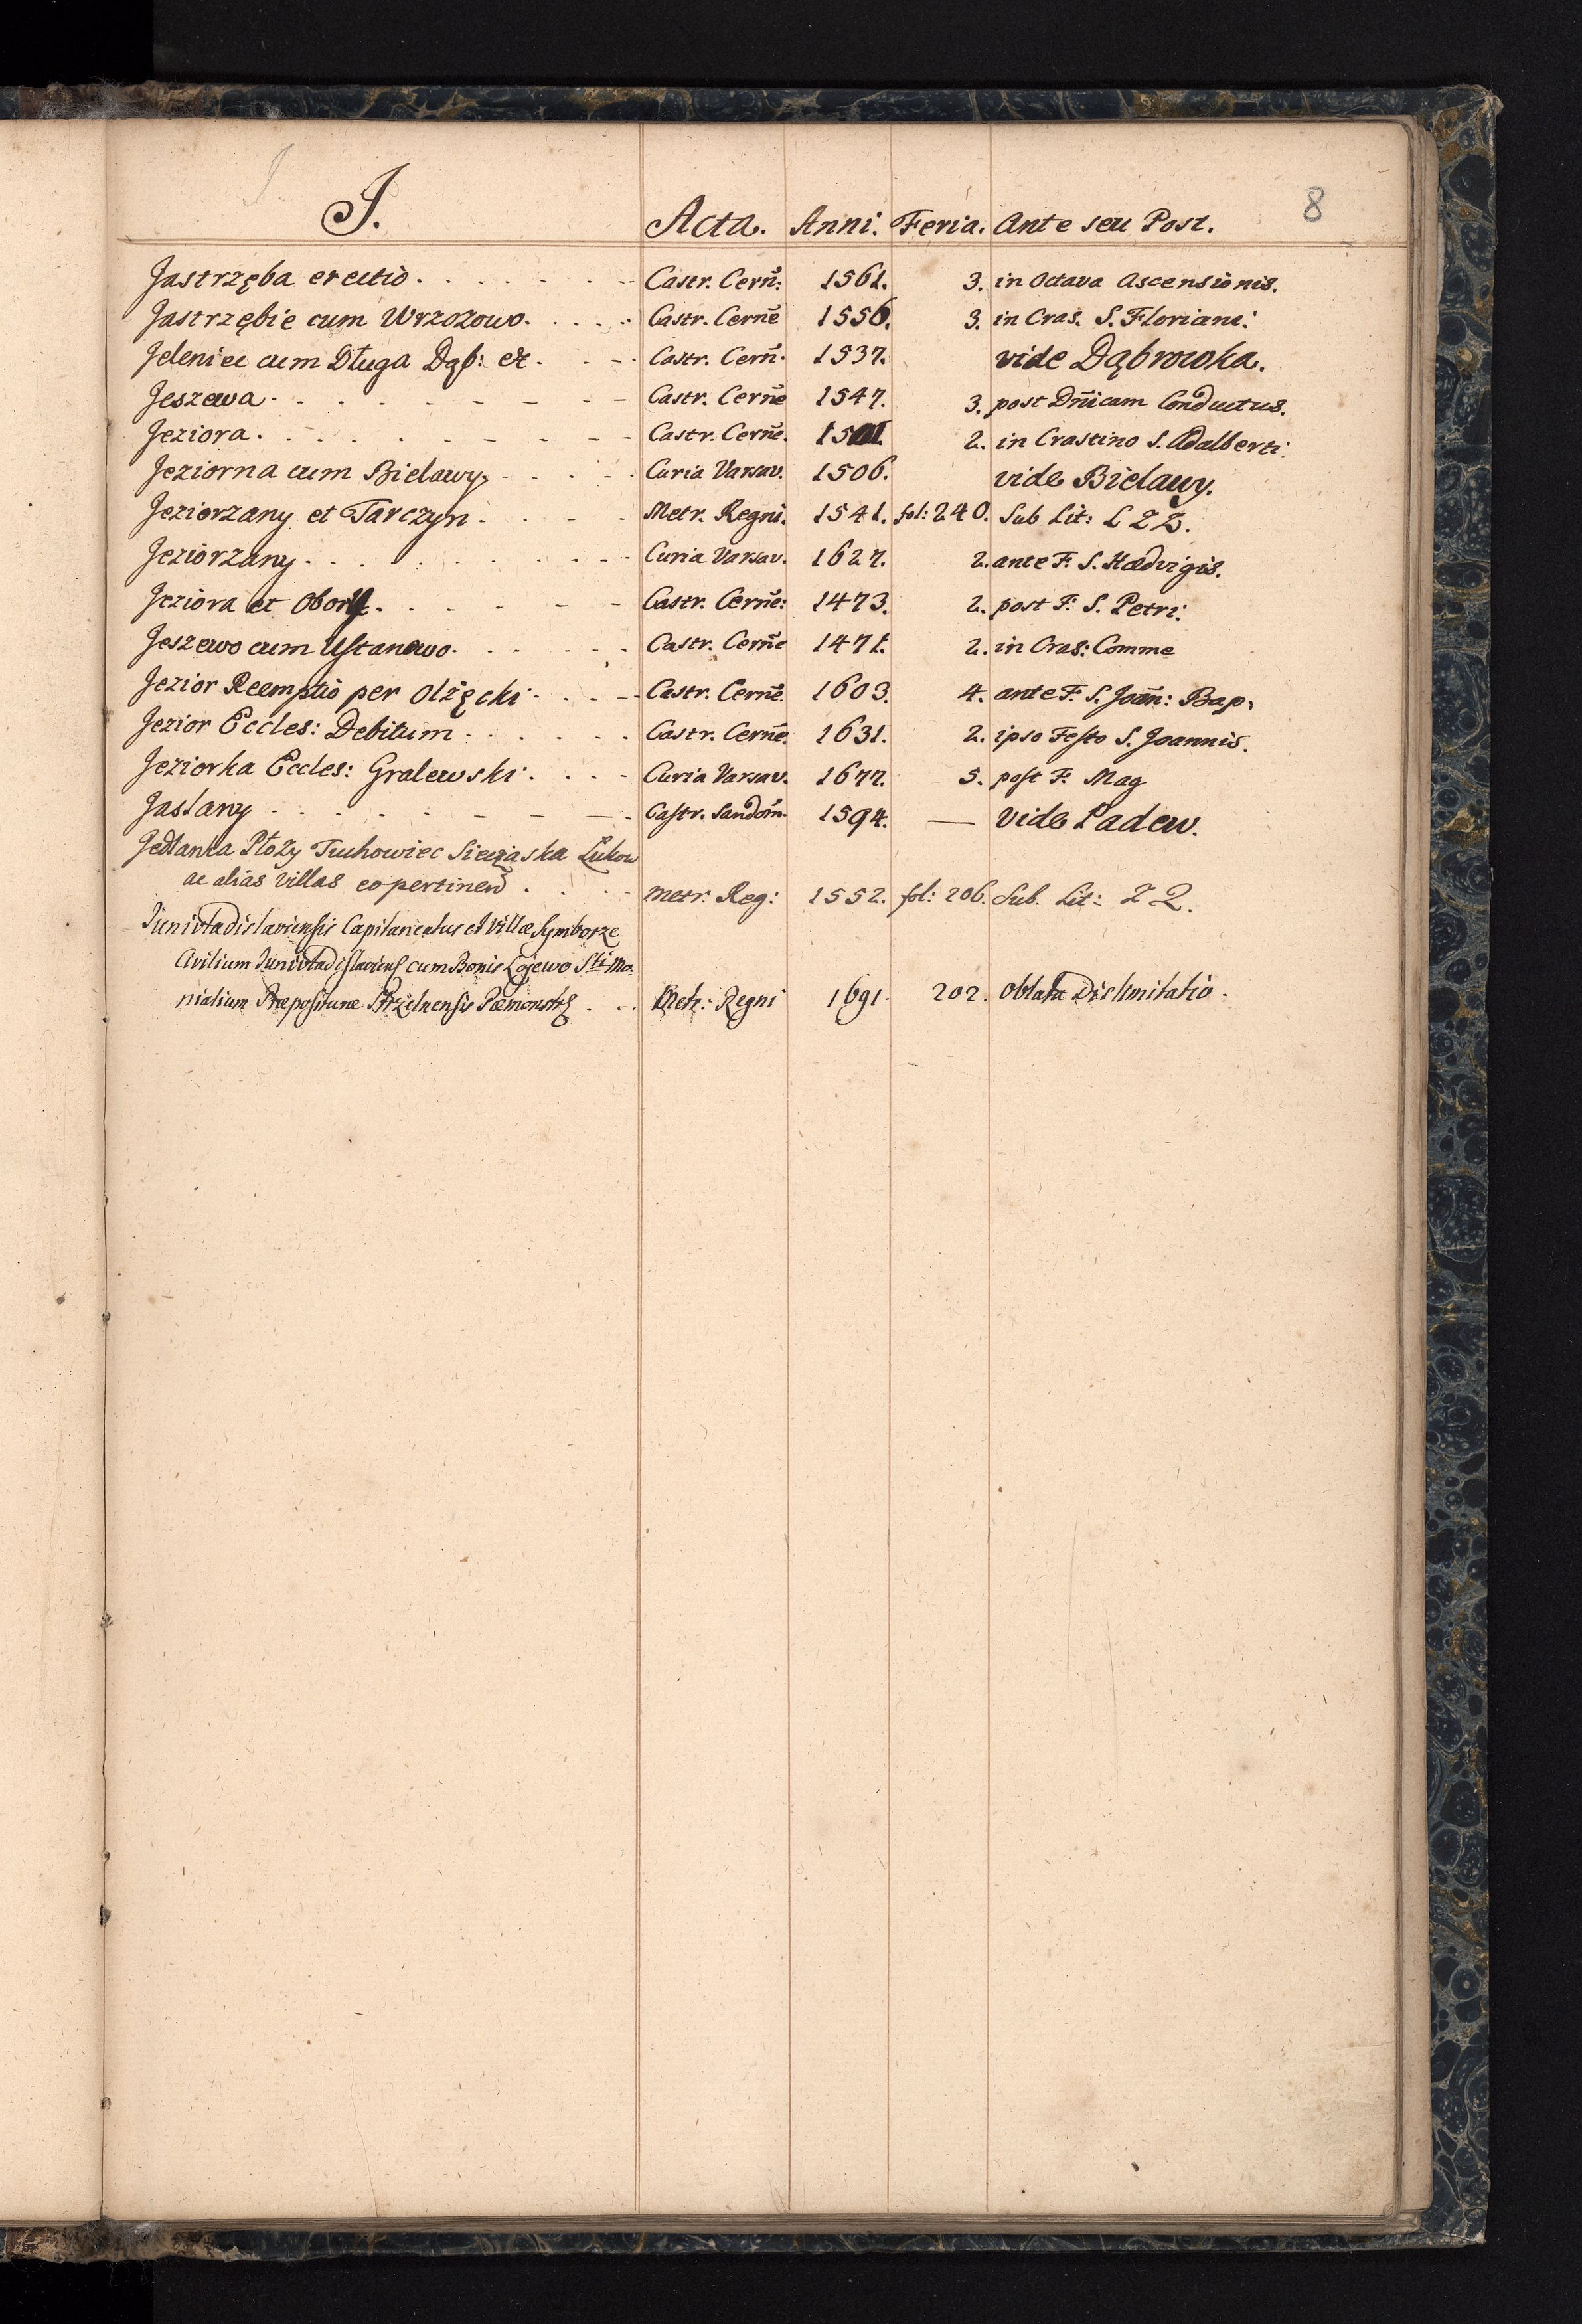 8
J.	Acta.	Anni.	Feria.	Ante seu Post.
Jastrzęba erectio	Castr. Cern̄:	1561.	3.	in Octava Ascensionis.
Jastrzębie cum Wrzozowo.	Castr. Cern̄e	1556.	3.	in Cras. S. Floriani:
Jeleniec cum Długa Dąb: et	Castr. Cern̄.	1537.		vide Dąbrowka.
Jeszewa	Castr. Cern̄e	1547.	3.	post Dn̄icam Conductus.
Jeziora	Castr. Cern̄e.		2.	in Crastino S. Adalberti.
Jeziorna cum Bielawy	Curia Varsav.	1506.		vide Bielawy.
Jeziorzany et Tarczyn	Metr. Regni.	1541.	fol: 240.	Sub Lit: L 22.
Jeziorzany	Curia Varsav.	1627.	2.	ante F. S. Hædvigis.
Jeziora et Obory	Castr. Cern̄e:	1473.	2.	post F: S. Petri.
Jeszewo cum Ustanowo	Castr. Cern̄e	1471.	2.	in Cras: Comme
Jezior Reemptio per Olżęcki	Castr. Cern̄e.	1603.	4.	ante F. S. Joan̄: Bap:
Jezior Eccles: Debitum	Castr. Cern̄e.	1631.	2.	ipso Festo S. Joannis.
Jeziorka Eccles: Gralewski	Curia Varsav.	1677.	5.	post F: Mag
Jaslany	Castr. Sandom̄.	1594.	—	vide Padew.
Jedlanka Płozy Tuchowiec Łukow
ac alias villas eo pertinen	Metr: Reg:	1552.	fol: 206.	Sub. Lit: 22.
Junivladislaviensis Capitaneatus et Villæ Symborze
Civilium Junivladislaviens cum Bonis Łojewo Sti-Mo-
nialium Præpositura Strzelnensis	Metr: Regni	1691.	202.	Oblata Dislimitatio.